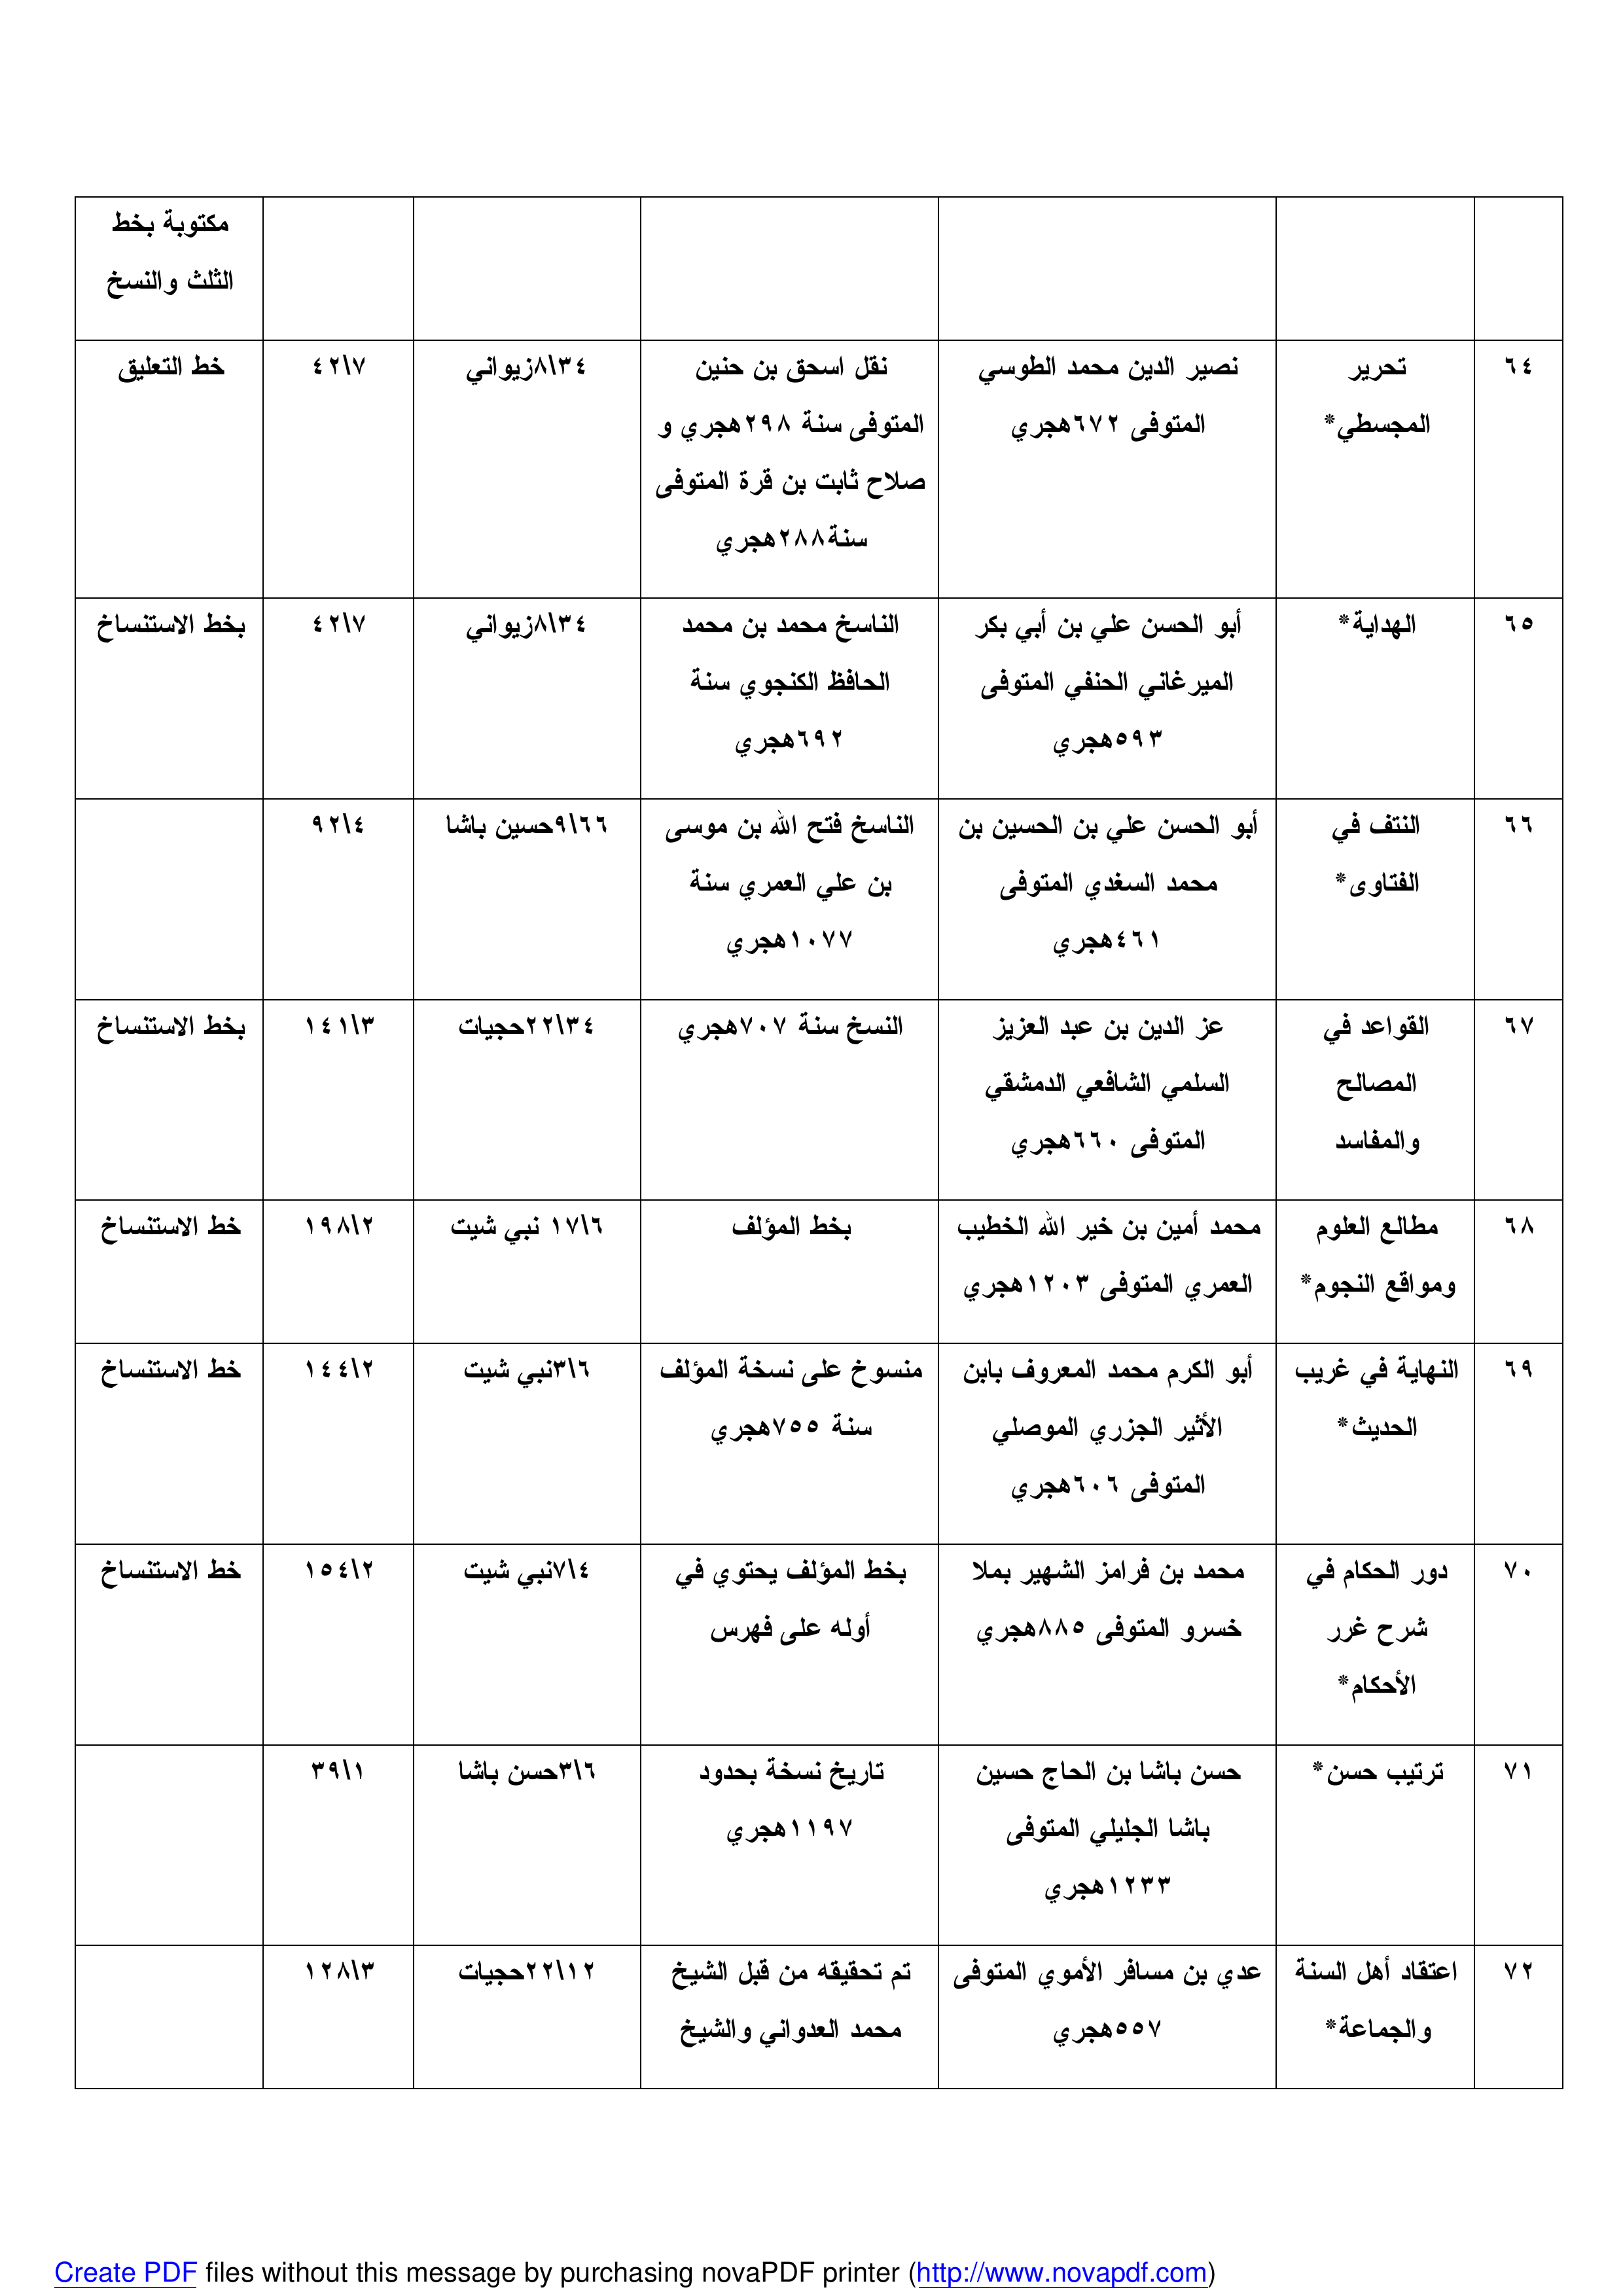 مكتوبة بخط
الثلث والنسخ
٦٤
تحرير
المجسطي*
نصير الدين محمد الطوسي
المتوفى ٦٧٢هجري
نقل اسحق بن حنين
المتوفى سنة ٢٩٨هجري و
صلاح ثابت بن قرة المتوفى
سنة٢٨٨هجري
٨\٣٤زيواني
٤٢\٧
خط التعليق
٦٥
الهداية*
أبو الحسن علي بن أبي بكر
الميرغاني الحنفي المتوفى
٥٩٣هجري
الناسخ محمد بن محمد
الحافظ الكنجوي سنة
٦٩٢هجري
٨\٣٤زيواني
٤٢\٧
بخط الاستنساخ
٦٦
النتف في
الفتاوى*
أبو الحسن علي بن الحسين بن
محمد السغدي المتوفى
٤٦١هجري
الناسخ فتح الله بن موسى
بن علي العمري سنة
١٠٧٧هجري
٩\٦٦حسين باشا
٩٢\٤
٦٧
القواعد في
المصالح
والمفاسد
عز الدين بن عبد العزيز
السلمي الشافعي الدمشقي
المتوفى ٦٦٠هجري
النسخ سنة ٧٠٧هجري
٢٢\٣٤حجيات
١٤١\٣
بخط الاستنساخ
٦٨
مطالع العلوم
ومواقع النجوم*
محمد أمين بن خير الله الخطيب
العمري المتوفى ١٢٠٣هجري
بخط المؤلف
١٧\٦ نبي شيت
١٩٨\٢
خط الاستنساخ
٦٩
النهاية في غريب
الحديث*
أبو الكرم محمد المعروف بابن
الأثير الجزري الموصلي
المتوفى ٦٠٦هجري
منسوخ على نسخة المؤلف
سنة ٧٥٥هجري
٣\٦نبي شيت
١٤٤\٢
خط الاستنساخ
٧٠
دور الحكام في
شرح غرر
الأحكام*
محمد بن فرامز الشهير بملا
خسرو المتوفى ٨٨٥هجري
بخط المؤلف يحتوي في
أوله على فهرس
٧\٤نبي شيت
١٥٤\٢
خط الاستنساخ
٧١
ترتيب حسن*
حسن باشا بن الحاج حسين
باشا الجليلي المتوفى
١٢٣٣هجري
تاريخ نسخة بحدود
١١٩٧هجري
٣\٦حسن باشا
٣٩\١
٧٢
اعتقاد أهل السنة
والجماعة*
عدي بن مسافر الأموي المتوفى
٥٥٧هجري
تم تحقيقه من قبل الشيخ
محمد العدواني والشيخ
٢٢\١٢حجيات
١٢٨\٣
Create PDF files without this message by purchasing novaPDF printer (http://www.novapdf.com)